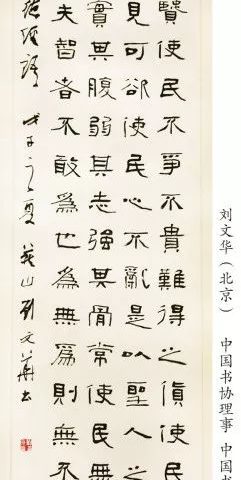 賢使民不爭不貴難得之貨使民
見可欲使民心不亂是以聖人之
實其腹弱其志強其骨常使民無
夫智者不敢爲也爲無爲則無不
德經語 戊子之夏 燕山劉文華书
刘文华（北京） 中国书协理事 中国书